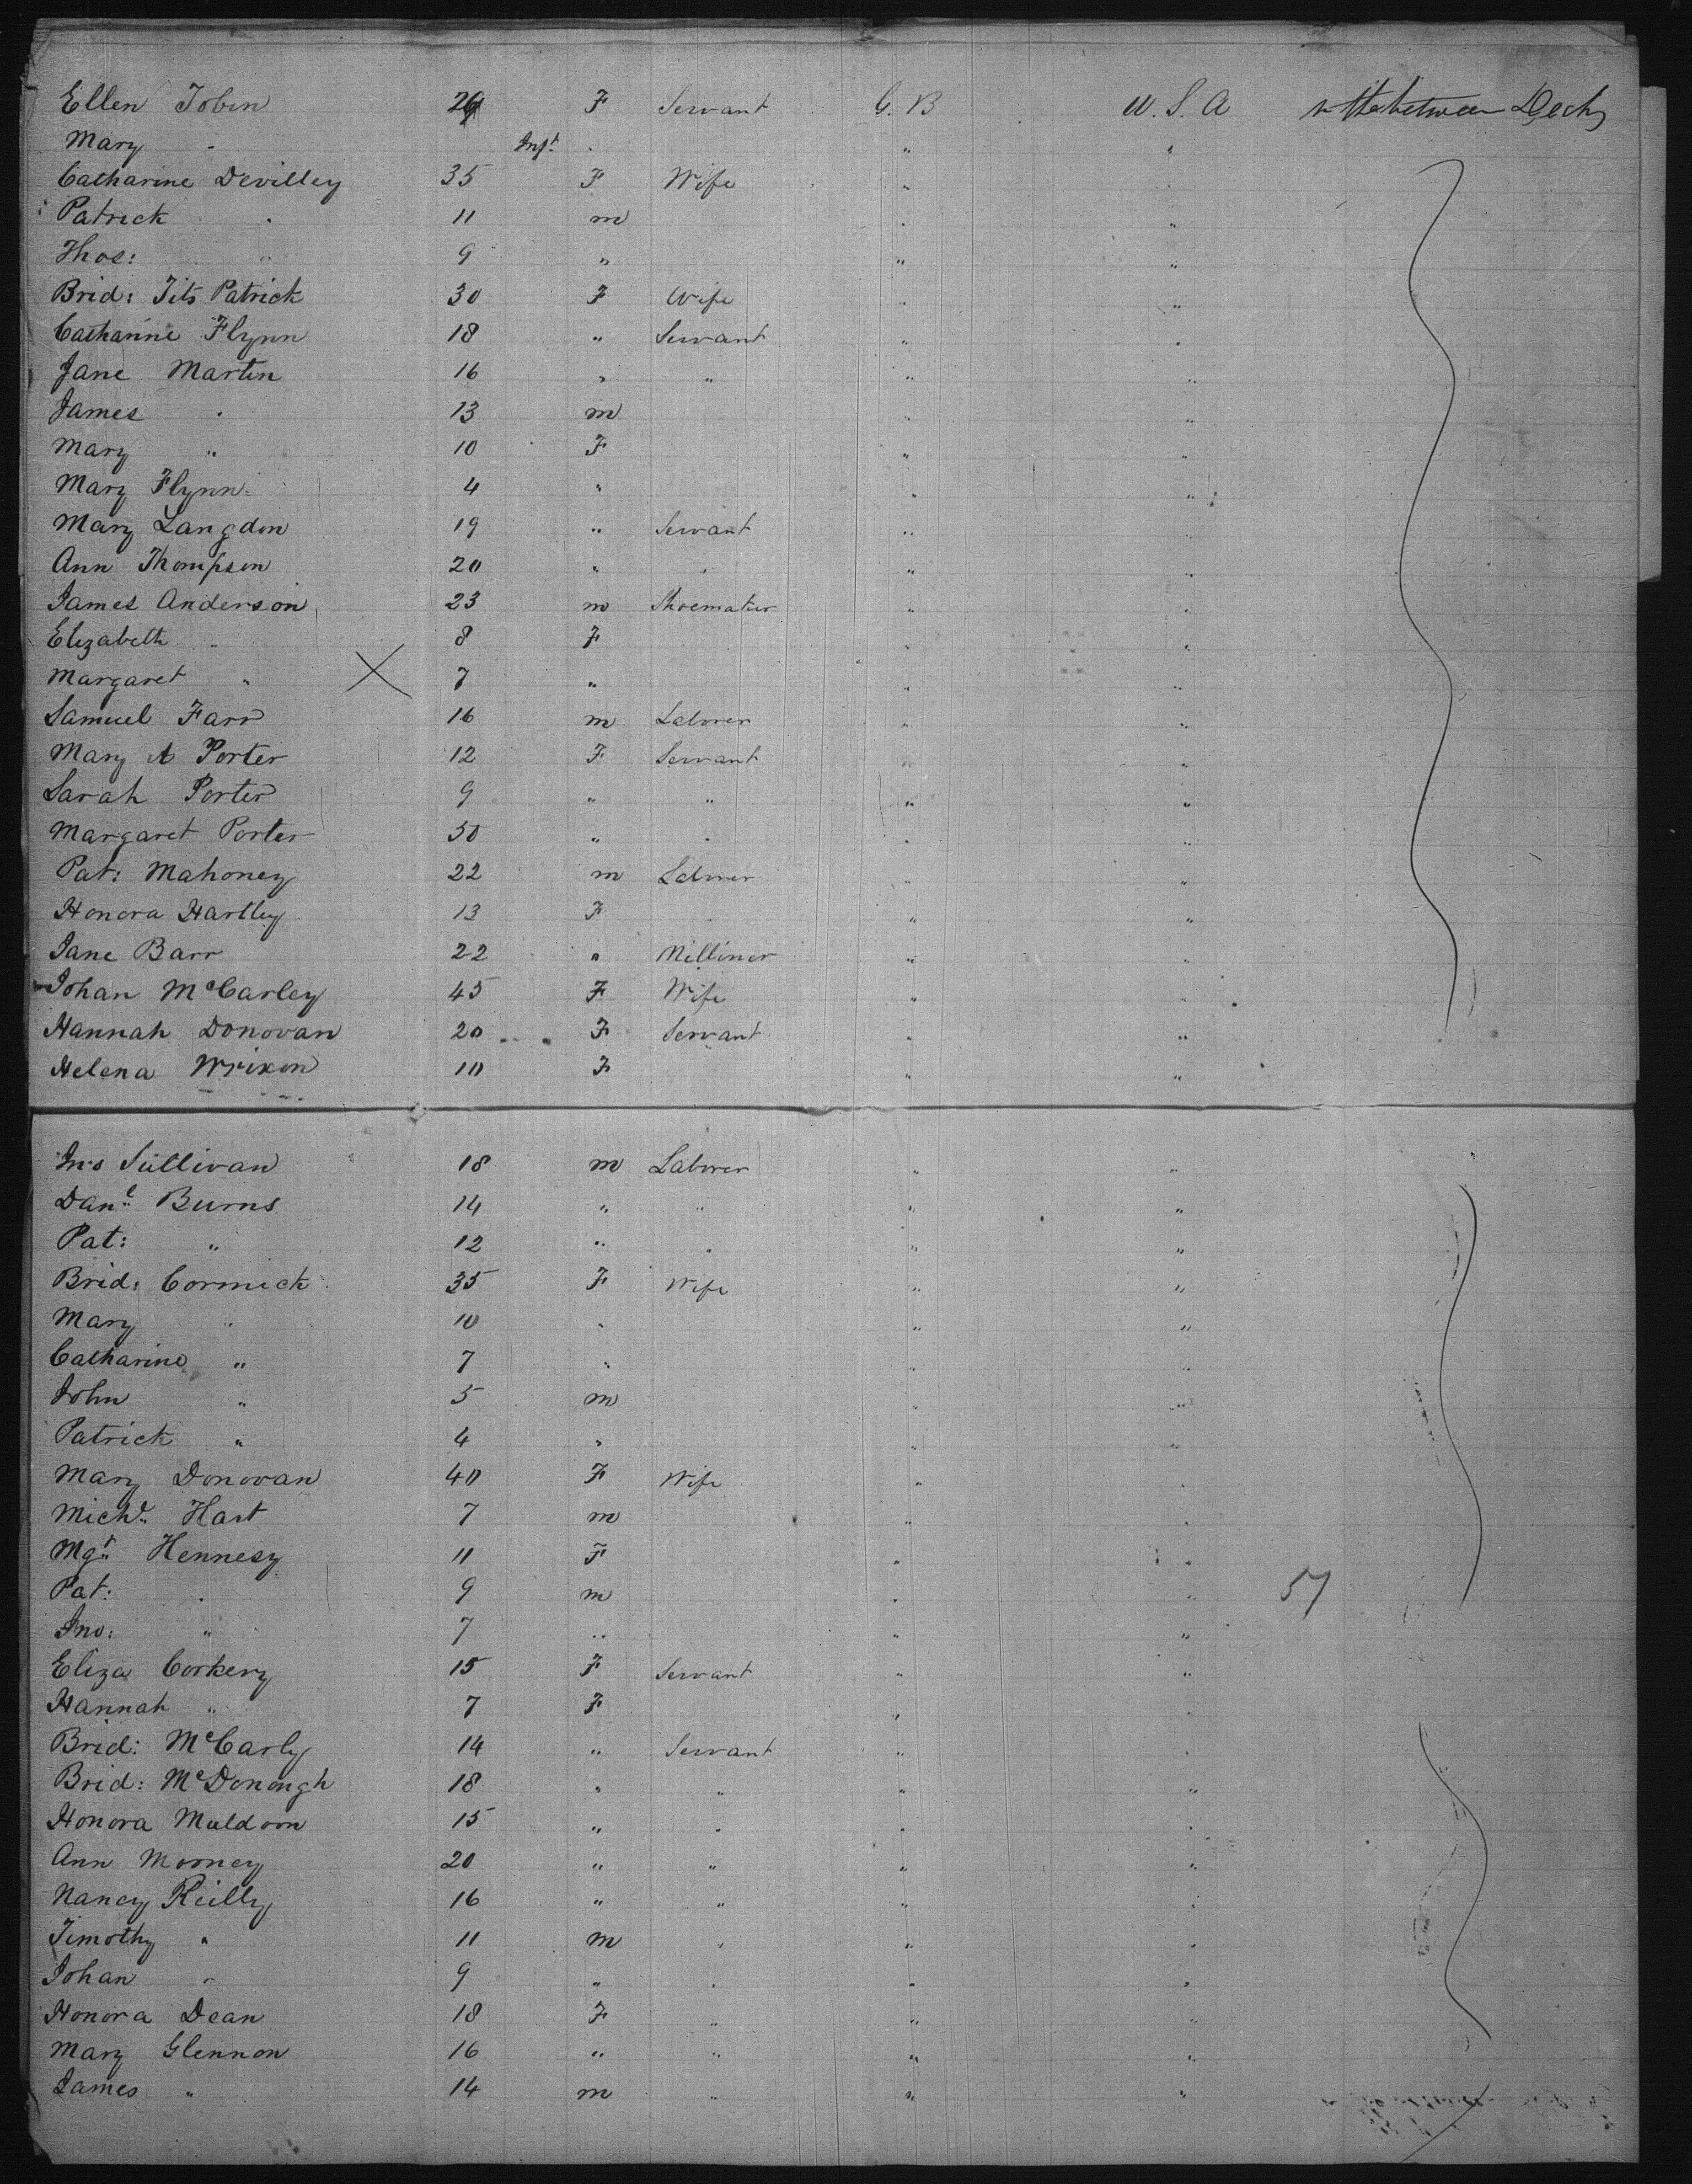 Ellen Tobin 29 F Servant G. B U. S. A In the between Decks
Mary " Inft " " "
Catharine Devilley 35 F Wife " "
Patrick " 11 m " "
Thos: " 9 " " "
Brid: Fits Patrick 30 F Wife " "
Catharine Flynn 18 " Servant " "
Jane Martin 16 " " " "
James " 13 m " "
Mary " 10 F " "
Mary Flynn 4 " " "
Mary Langdon 19 " Servant " "
Ann Thompson 20 " " " "
James Anderson 23 m Shoemaker " "
Elizabeth " 8 F " "
Margaret " 7 " " "
Samuel Farr 16 m Laborer " "
Mary A Porter 12 F Servant " "
Sarah Porter 9 " " " "
Margaret Porter 50 " " " "
Pat: Mahoney 22 m Laborer " "
Honora Hartley 13 F " "
Jane Barr 22 " Milliner " "
Johan McCarley 45 F Wife " "
Hannah Donovan 20 F Servant " "
Helena Wrixon 10 F " "
Jno Sullivan 18 m Laborer " "
Danl Burns 14 " " " "
Pat: " 12 " " " "
Brid: Cormick 35 F Wife " "
Mary " 10 " " "
Catharine " 7 " " "
John " 5 m " "
Patrick " 4 " " "
Mary Donovan 40 F Wife " "
Michl Hart 7 m " "
Mgt Hennesy 11 F " "
Pat: " 9 m " " 57
Jno: " 7 " " "
Eliza Corkery 15 F Servant " "
Hannah " 7 F " "
Brid: McCarly 14 " Servant " "
Brid: McDonough 18 " " " "
Honora Muldoon 15 " " " "
Ann Mooney 20 " " " "
Nancy Reilly 16 " " " "
Timothy " 11 m " " "
Johan " 9 " " " "
Honora Dean 18 F " " "
Mary Glennon 16 " " " "
James " 14 m " " "